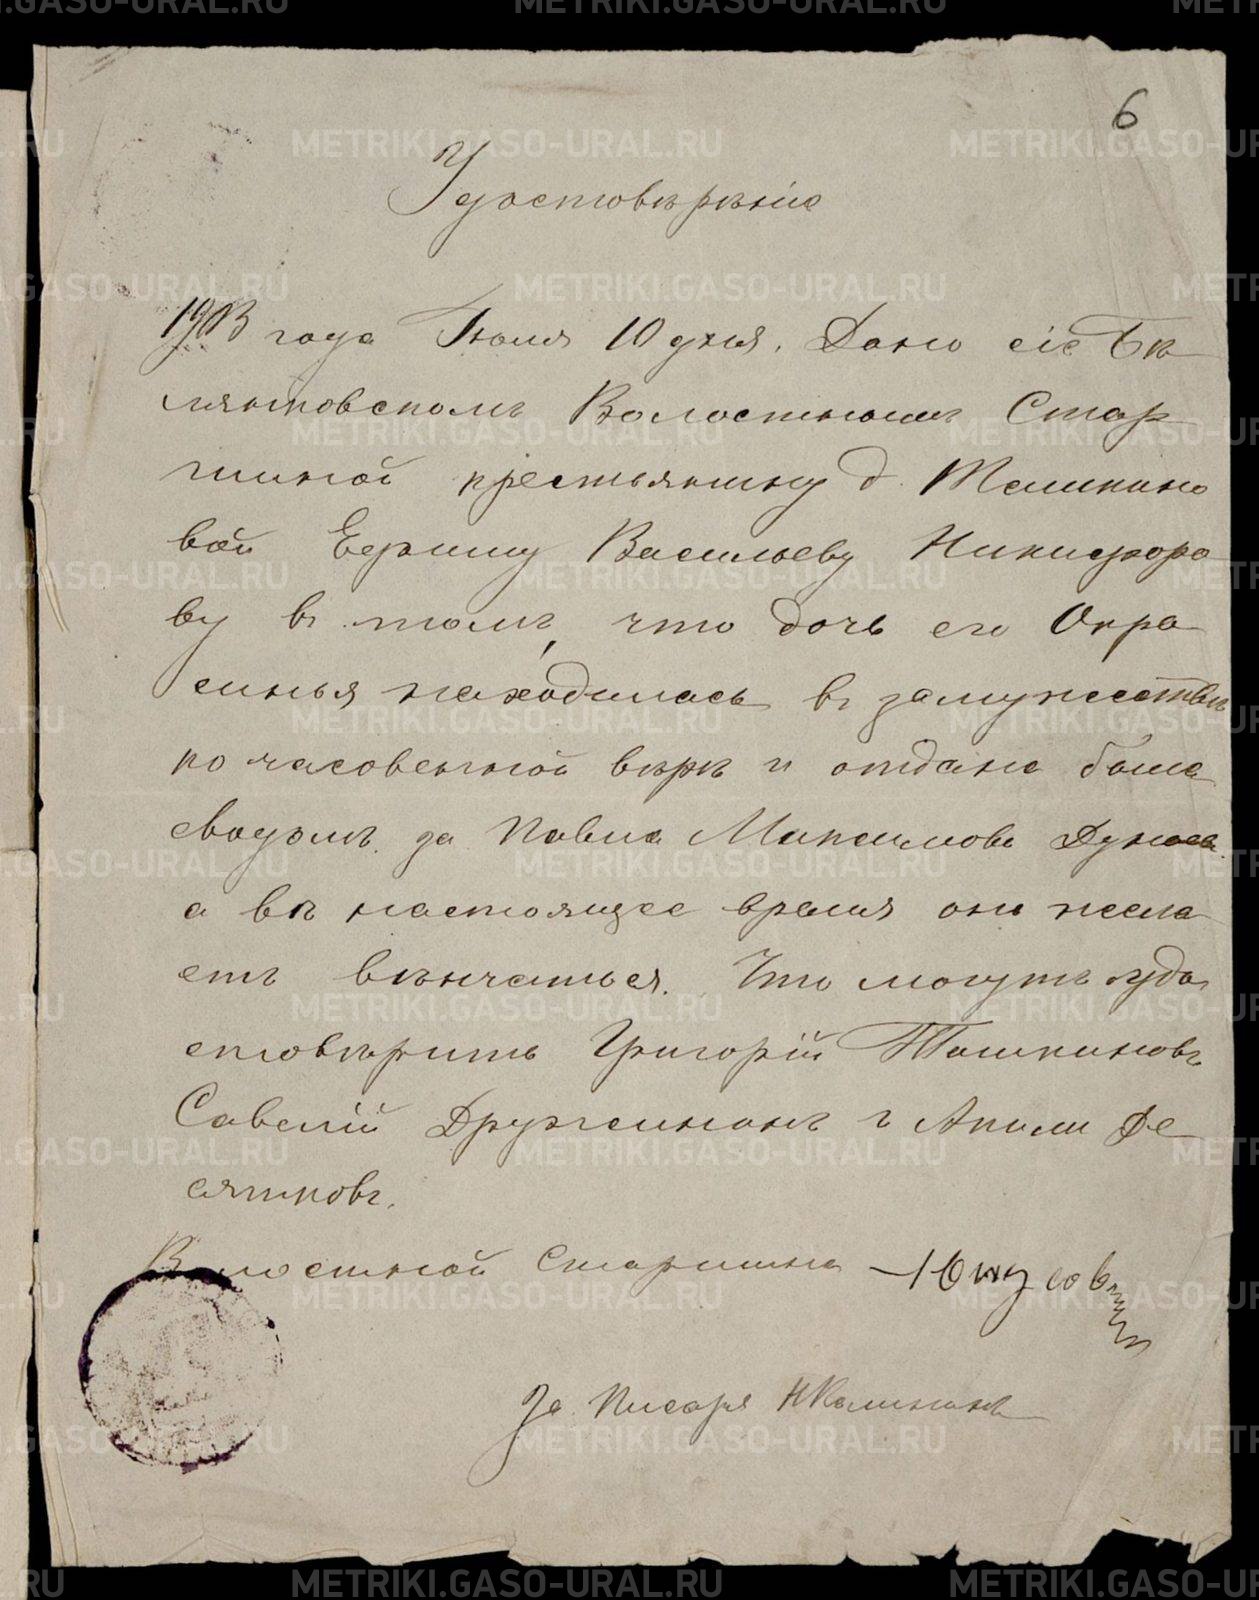 6
Удостовѣрѣніе
1903 года Іюля 10 дня. Дано сіе Бѣ
лянковскомъ Волостномъ Стар
шиной крестьянину д. Талашкино
вой Ефиму Васильеву Никифоро
ву въ томъ, что дочь его Окра
синья находилась въ замужествѣ
по часовенной вѣрѣ и отдана была
сводомъ за Павла Максимова Дунаева
а въ настоящее время она жела
етъ вѣнчаться. Что могутъ удо
стовѣрить Григорій Ташкиновъ
Савелій Дружининъ и Акили Де
сятковъ.
Волостной Старшина
За Писаря Н Калининъ
METRIKI.GASO-URAL.RU